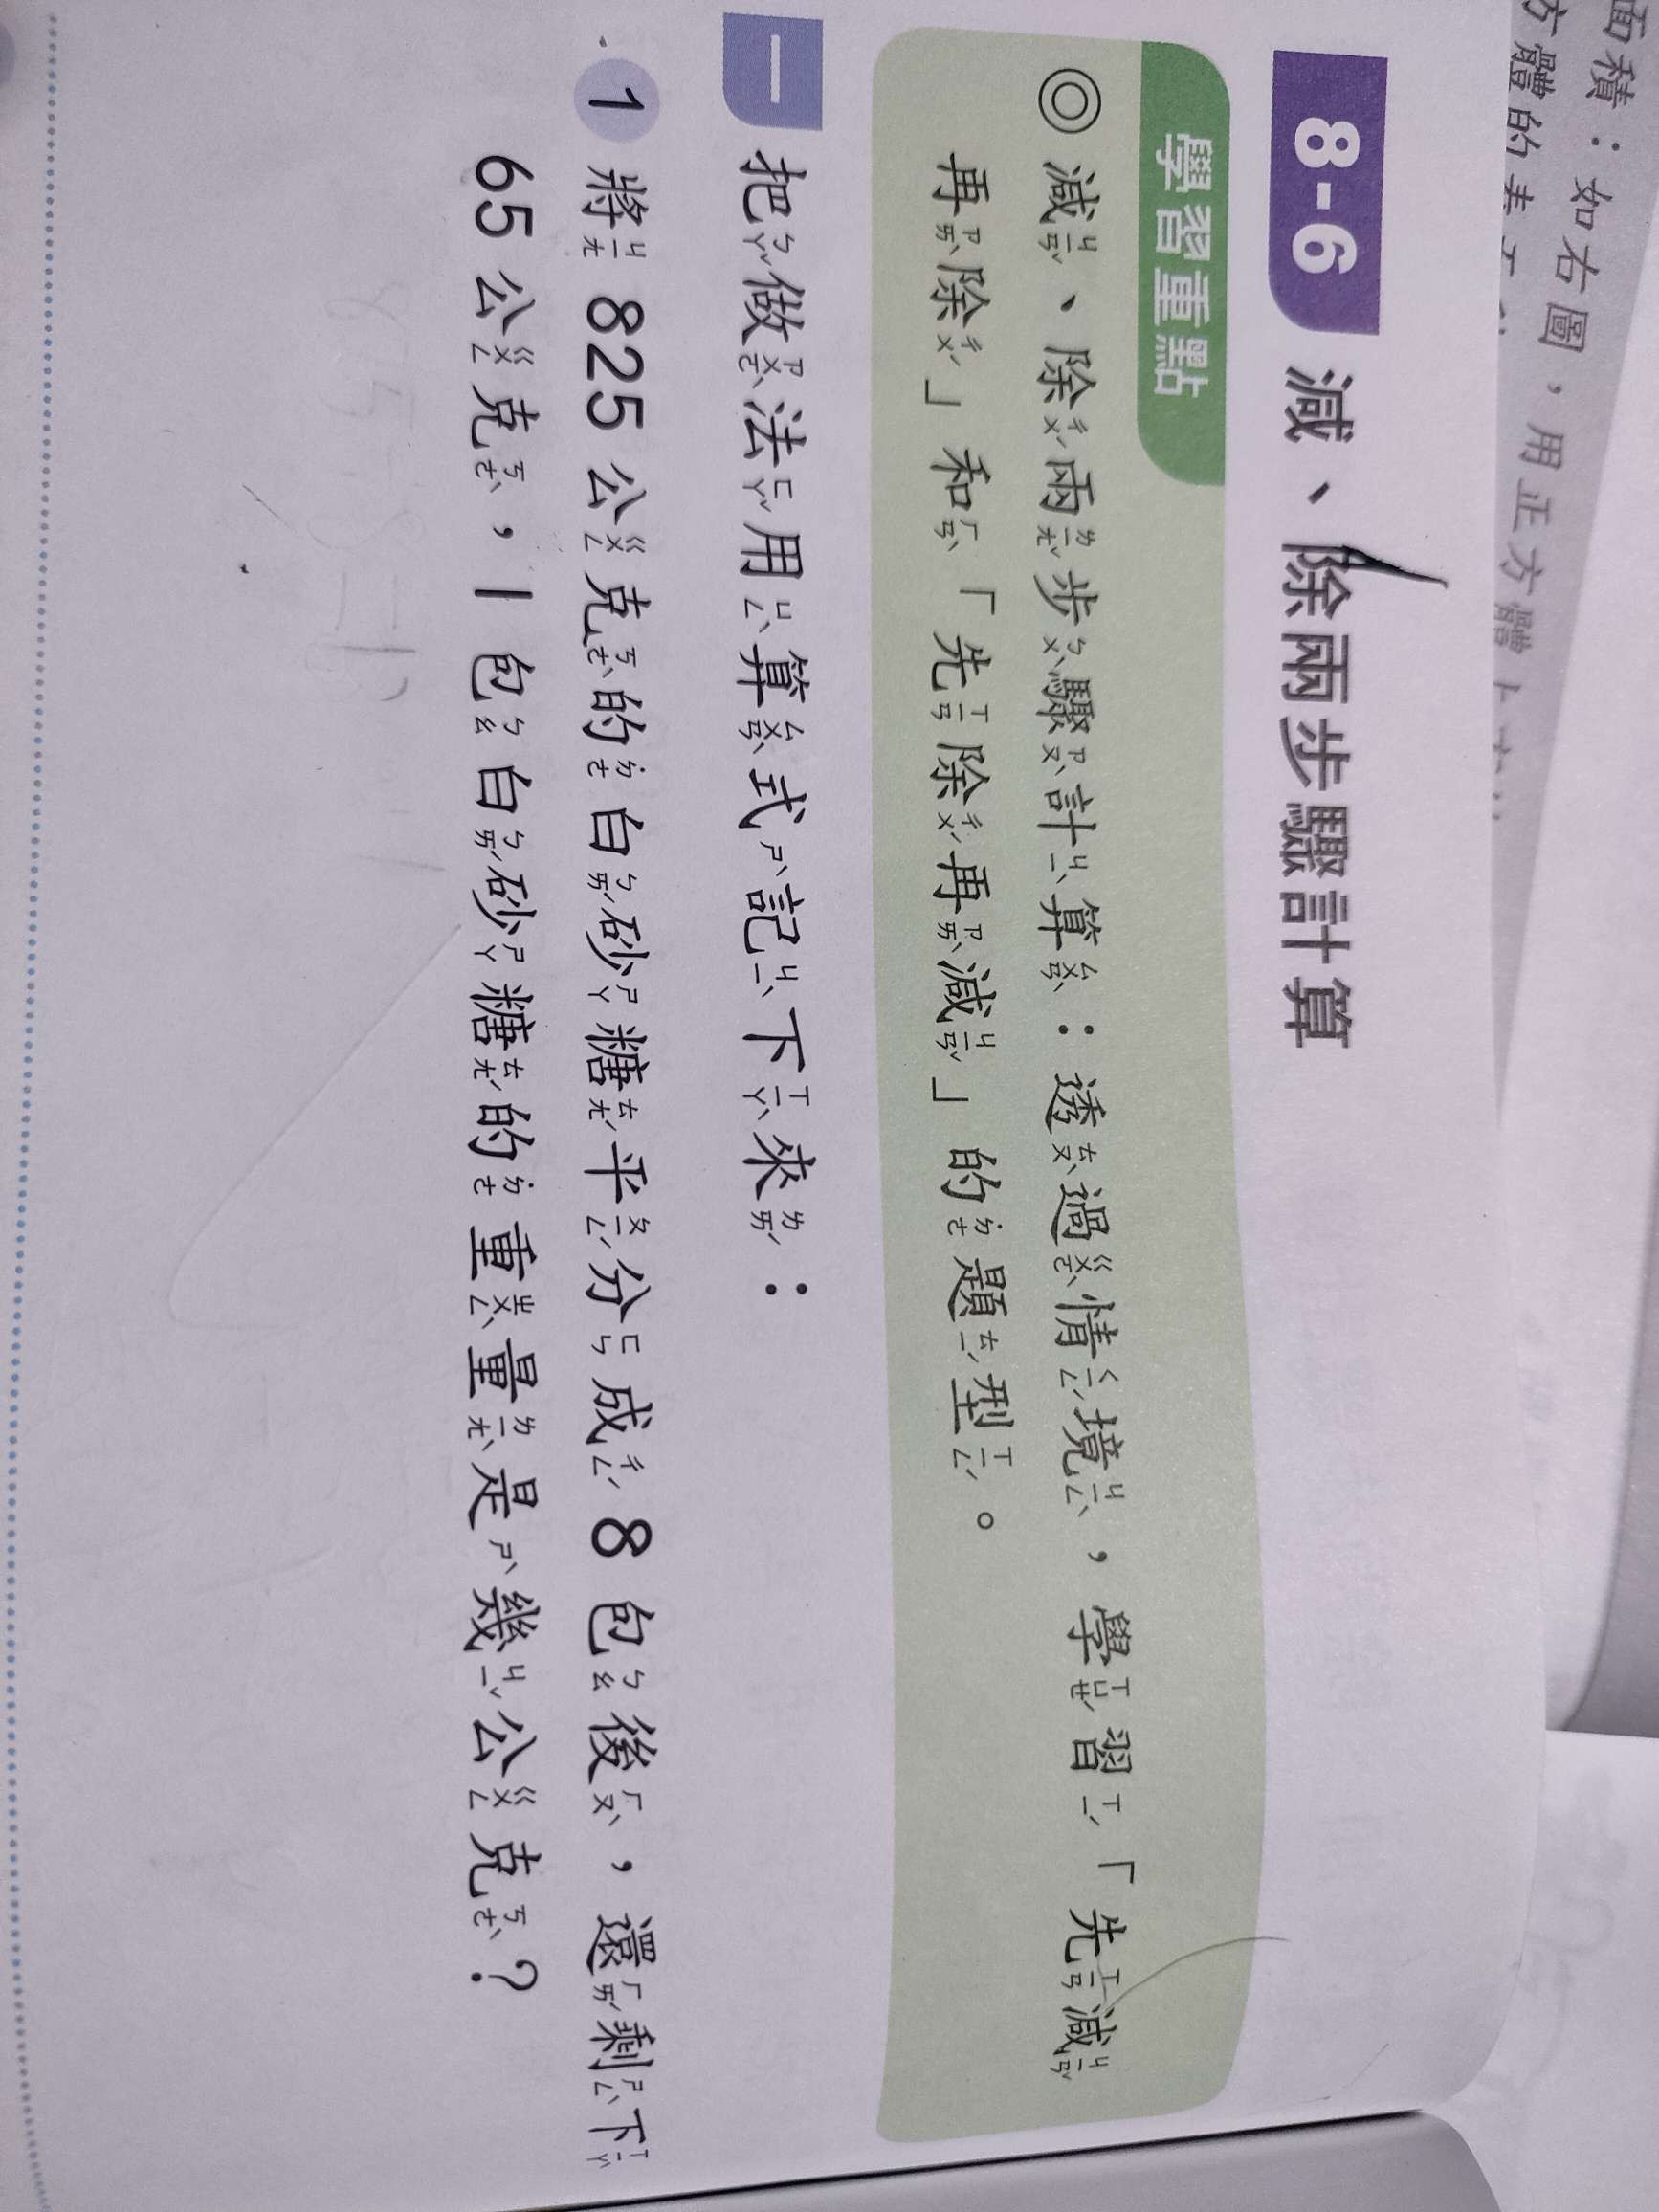 面積：如右圖，用正方體
方體的表
8-6 減、除兩步驟計算
學習重點
◎減、除兩步驟計算：透過情境，學習「先減
再除」和「先除再減」的題型。
一 把做法用算式記下來：
1 將 825 公克的白砂糖平分成 8 包後，還剩下
65 公克，1 包白砂糖的重量是幾公克？